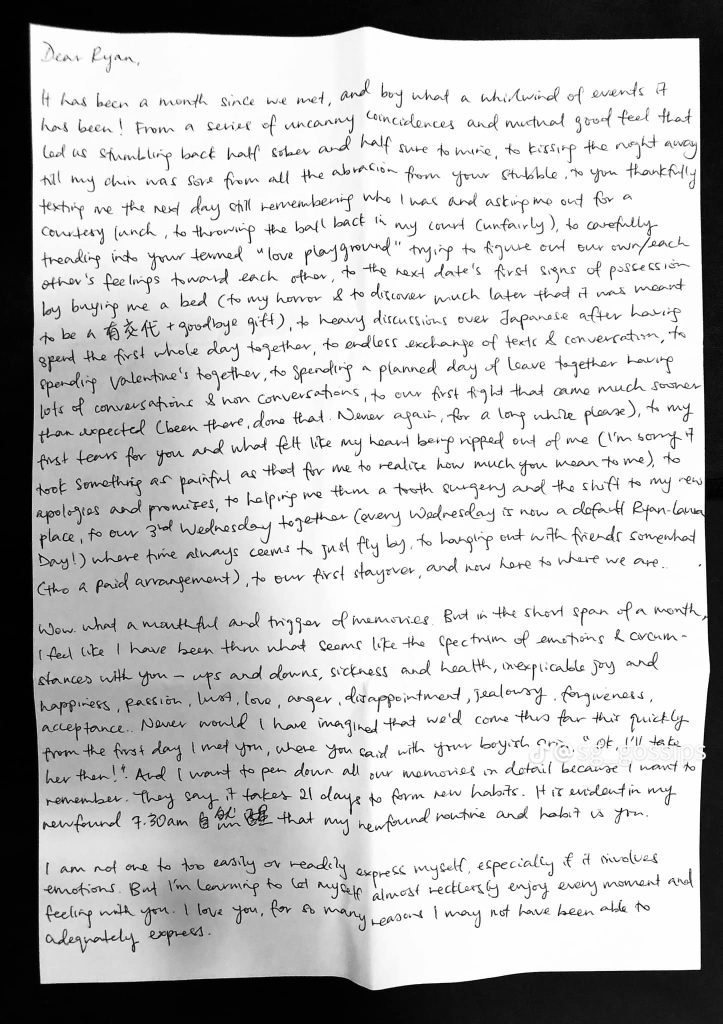 Dear Ryan,
It has been a month since we met, and boy what a whirlwind of events it
has been! From a series of uncanny coincidences and mutual good feel that
led us stumbling back half sober and half sure to mine, to kissing the night away
till my chin was sore from all the abrasion from your stubble, to you thankfully
texting me the next day still remembering who I was and asking me out for a
courtesy lunch, to throwing the ball back in my court (unfairly), to carefully
treading into your termed "love playground" trying to figure out our own/each
other's feelings toward each other, to the next date's first signs of possession
by buying me a bed (to my horror & to discover much later that it was meant
to be a 有交代 + goodbye gift), to heavy discussions over Japanese after having
spent the first whole day together, to endless exchange of texts & conversation, to
spending Valentine's together, to spending a planned day of leave together having
lots of conversations & non conversations, to our first fight that came much sooner
than expected (been there, done that. Never again, for a long while please), to my
first tears for you and what felt like my heart being ripped out of me (I'm sorry it
took something as painful as that for me to realize how much you mean to me), to
apologies and promises, to helping me thru a tooth surgery and the shift to my new
place, to our 3rd Wednesday together (every Wednesday is now a default Ryan-Laura
Day!) where time always seems to just fly by, to hanging out with friends somewhat
(tho a paid arrangement), to our first stayover, and now here to where we are..
Wow. what a mouthful and trigger of memories. But in the short span of a month,
I feel like I have been thru what seems like the spectrum of emotions & circum-
stances with you – ups and downs, sickness and health, inexplicable joy and
happiness, passion, lust, love, anger, disappointment, jealousy, forgiveness,
acceptance.. Never would I have imagined that we'd come this far this quickly
from the first day I met you, where you said with your boyish grin, "Ok, I'll take
her then!". And I want to pen down all our memories in detail because I want to
remember. They say it takes 21 days to form new habits. It is evident in my
newfound 7.30am 自然醒 that my newfound routine and habit is you.
I am not one to too easily or readily express myself, especially if it involves
emotions. But I'm learning to let myself almost recklessly enjoy every moment and
feeling with you. I love you, for so many reasons I may not have been able to
adequately express.